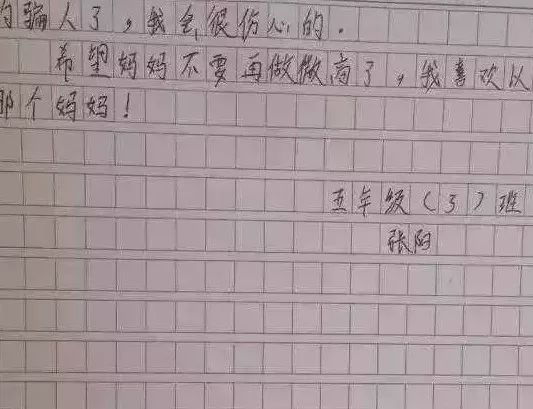 的骗人了，我会很伤心的。
希望妈妈不要再做微商了，我喜欢以
那个妈妈！
五年级（3）班
张阳